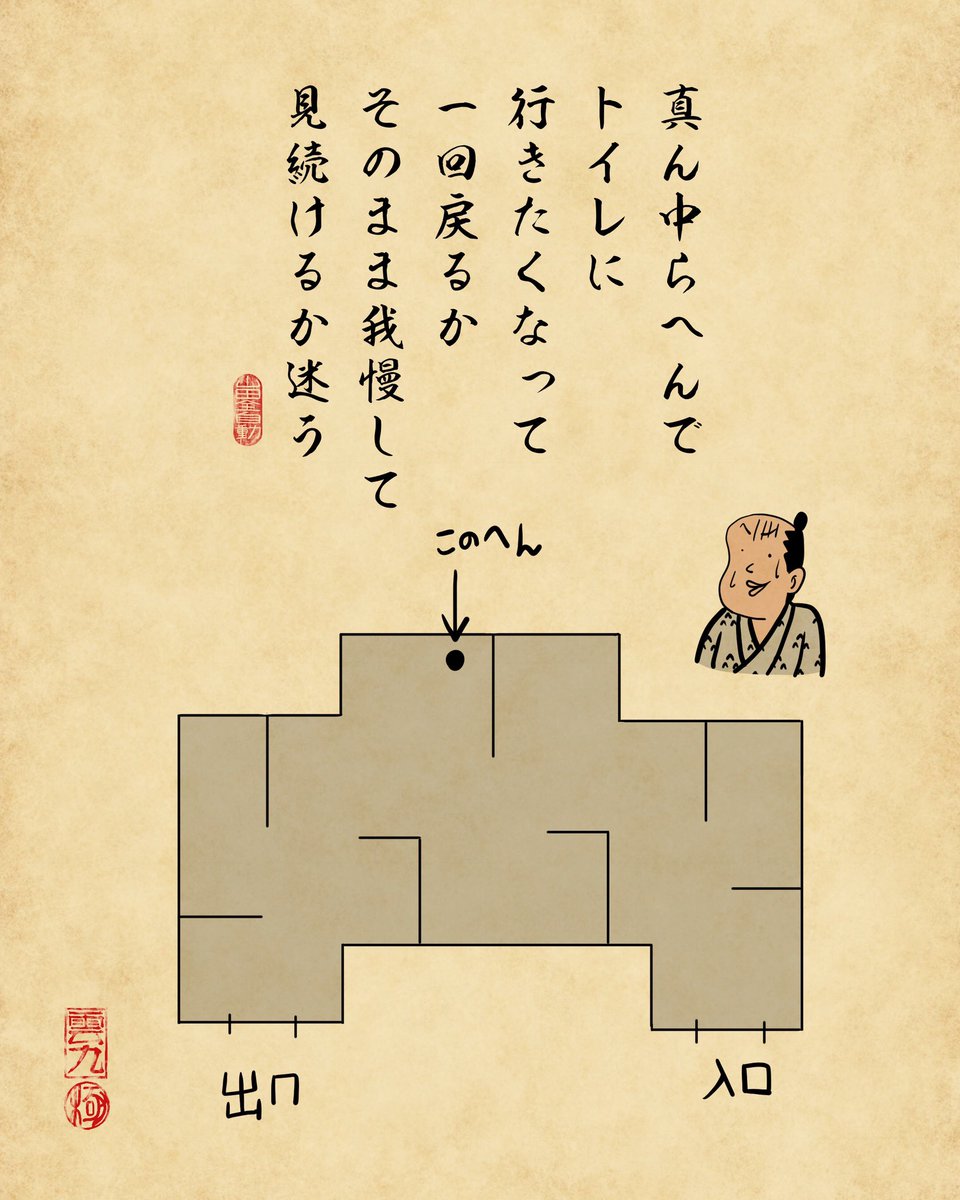 真ん中らへんで
トイレに
行きたくなって
一回戻るか
そのまま我慢して
見続けるか迷う
このへん
出口
入口